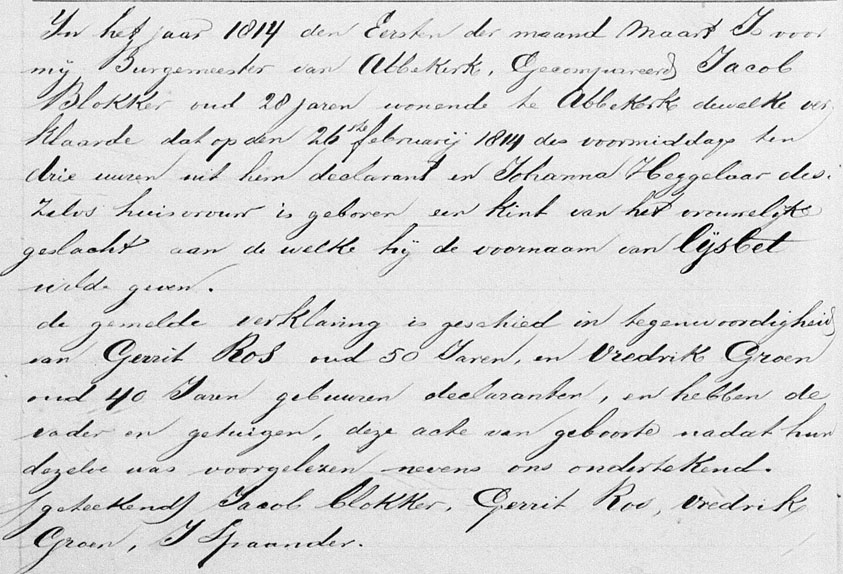 In het jaar 1814 den Eersten der maand Maart Is voor
mij Burgemeester van Abbekerk, Gecompareerd Jacob
Blokker oud 28 jaren wonende te Abbekerk dewelke ver
klaarde dat op den 26ste februarij 1814 des voormiddags ten
drie uuren uit hem declarant en Johanna Heggelaar des-
zelvs huisvrouw is geboren een kint van het vrouwelijk
geslacht aan de welke hij de voornaam van Lijsbet
wilde geven.
de gemelde verklaring is geschied in tegenwoordigheid
van Gerrit Ros oud 50 Jaren, en Vredrik Groen
oud 40 Jaren gebuuren declaranten, en hebben de
vader en getuigen, deze acte van geboorte nadat hun
dezelve was voorgelezen nevens ons ondertekend.
/geteekend/ Jacob blokker, Gerrit Ros, Vredrik
Groen, J Spaander.